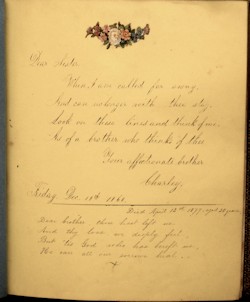 Dear Sister
When I am called far away,
And can no longer with thee stay,
Look on these lines and think of me,
As of a brother who thinks of thee
From affectionate brother
Charley
Friday Dec. 1861.
Died April 13th 1877, aged 28 years
Dear brother thou hast left us
And thy loss we deeply feel
But 'tis God who has bereft us,
He can all our sorrows heal.